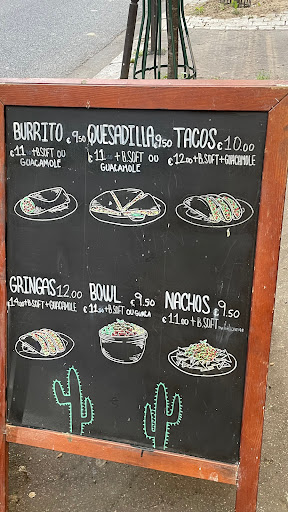 BURRITO €9.50
€11 + B.SOFT OU
GUACAMOLE
QUESADILLA 9.50
€11 + B.SOFT OU
GUACAMOLE
TACOS €10.00
€12.00 + B.SOFT + GUACAMOLE
GRINGAS 12.00
€14.00 + B.SOFT + GUACAMOLE
BOWL €9.50
€11.00 + B.SOFT OU GUACA
NACHOS €9.50
€11.00 + B.SOFT